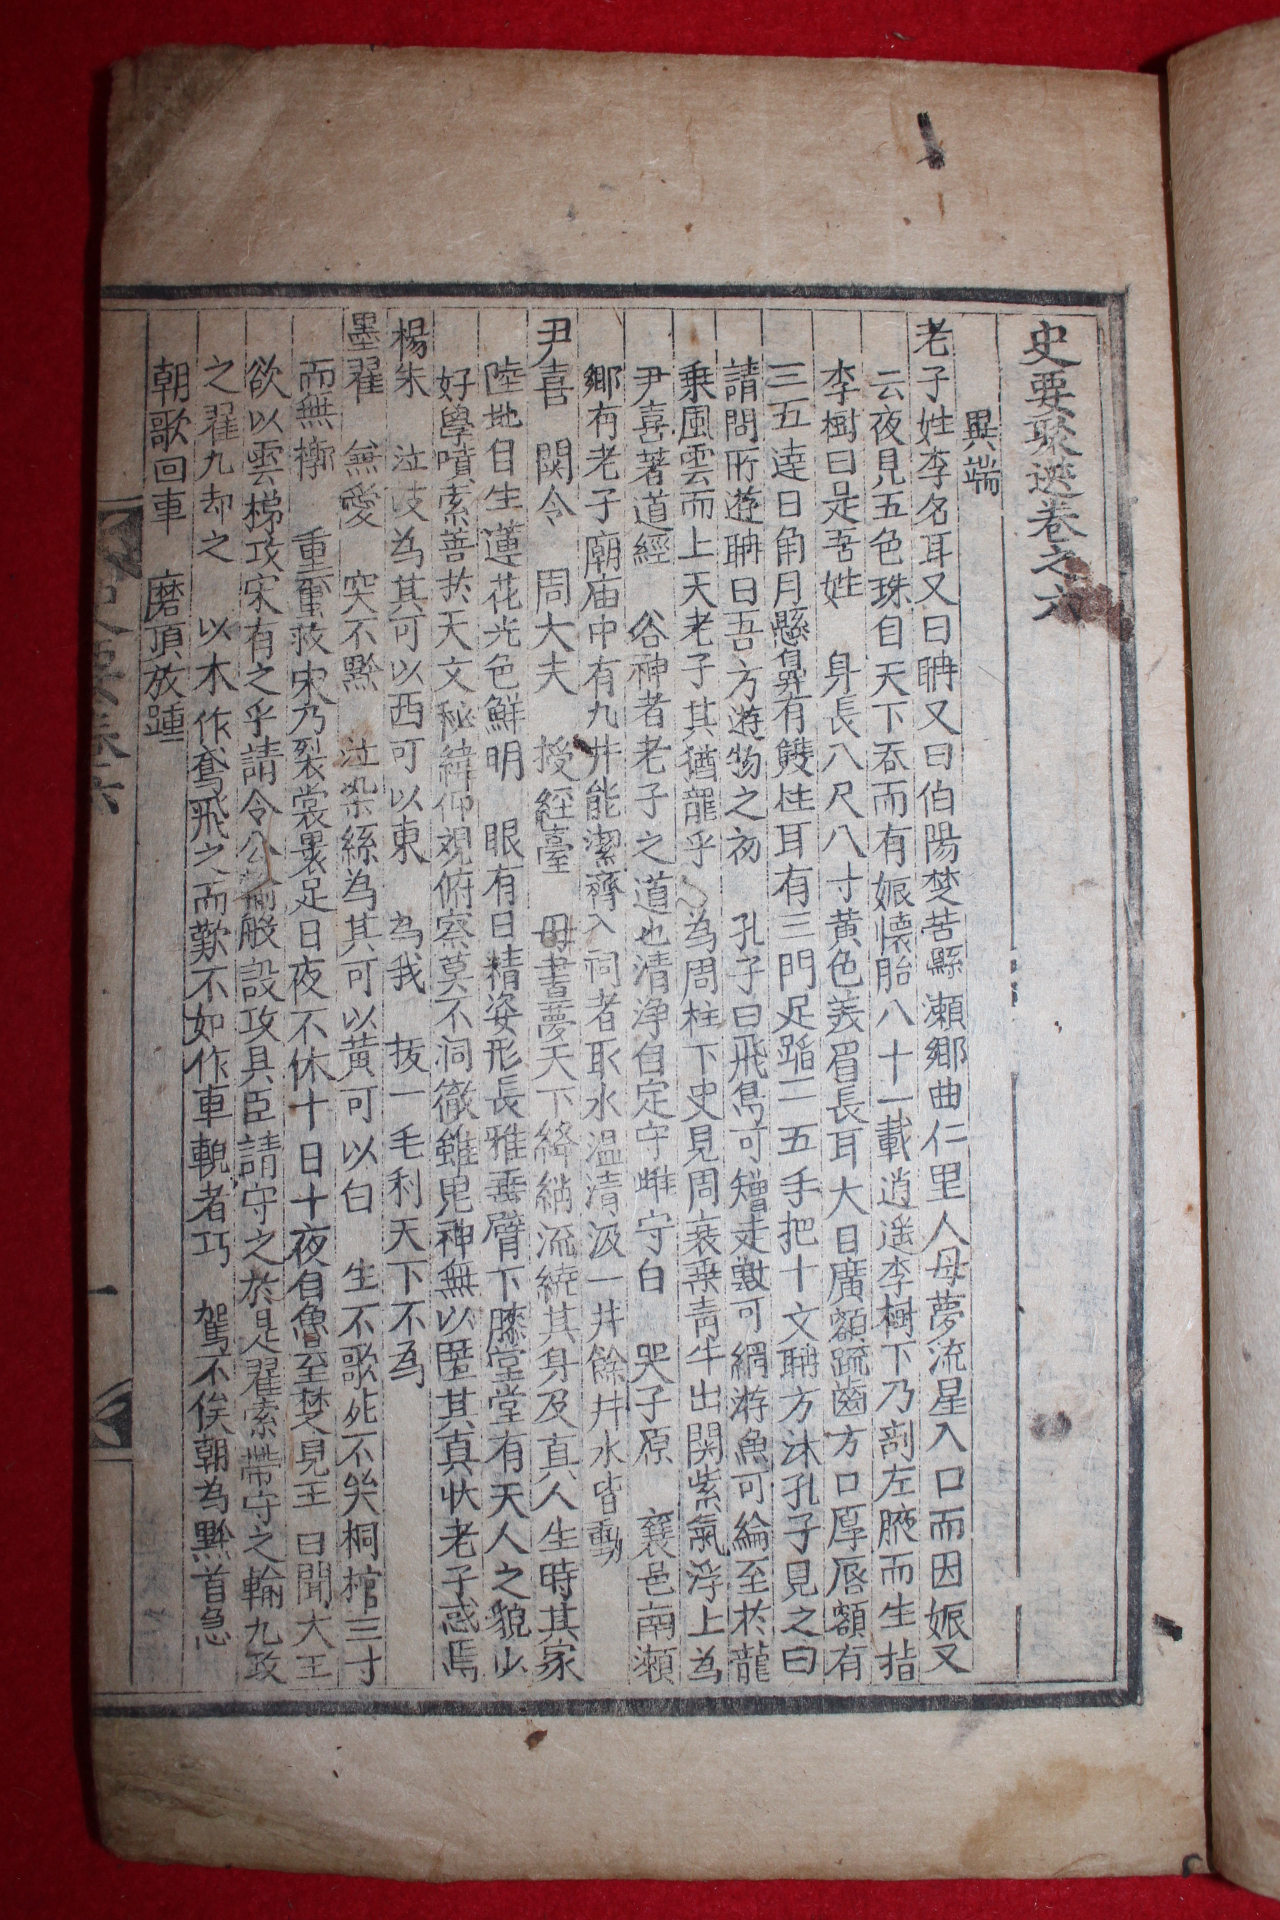 史要聚選卷之六
異端
老子姓李名耳又曰聃又曰伯陽楚苦縣瀨鄉曲仁里人母夢流星入口而因娠又
云夜見五色珠自天下吞而有娠懷胎八十一載逍遙李樹下乃剖左腋而生指
李樹曰是吾姓 身長八尺八寸黃色義眉長耳大目廣額疏齒方口厚唇額有
三五達日角月懸鼻有雙柱耳有三門足蹈二五手把十文聃方沐孔子見之曰
請問所遊聃曰吾方遊物之初 孔子曰飛鳥可矰走獸可網游魚可綸至於龍
乘風雲而上天老子其猶龍乎 為周柱下史見周衰乘青牛出關紫氣浮上為
尹喜著道經 谷神者老子之道也清淨自定守雌守白 哭子原 襄邑南瀨
鄉有老子廟庙中有九井能潔齊入祠者取水溫清汲一井餘井水皆動
尹喜 関令 周大夫 授經臺 母晝夢天下絳綃流繞其身及真人生時其家
陸地自生蓮花光色鮮明 眼有日精姿形長雅垂臂下膝堂堂有天人之貌少
好學嘖索善於天文秘緯仰視俯察莫不洞徹雖鬼神無以匿其真狀老子惑焉
楊朱 泣岐為其可以西可以東 為我 拔一毛利天下不為
墨翟 無愛 突不黔 泣染絲為其可以黃可以白 生不歌死不哭桐棺三寸
而無槨 重蠒救宋乃裂裳裹足日夜不休十日十夜自魯至楚見王曰聞大王
欲以雲梯攻宋有之乎請令公輸般設攻具臣請守之於是翟索帶守之輸九攻
之翟九却之 以木作鳶飛之而歎不如作車輗者巧 駕不俟朝為黔首急
朝歌回車 磨頂放踵
史要卷六
一